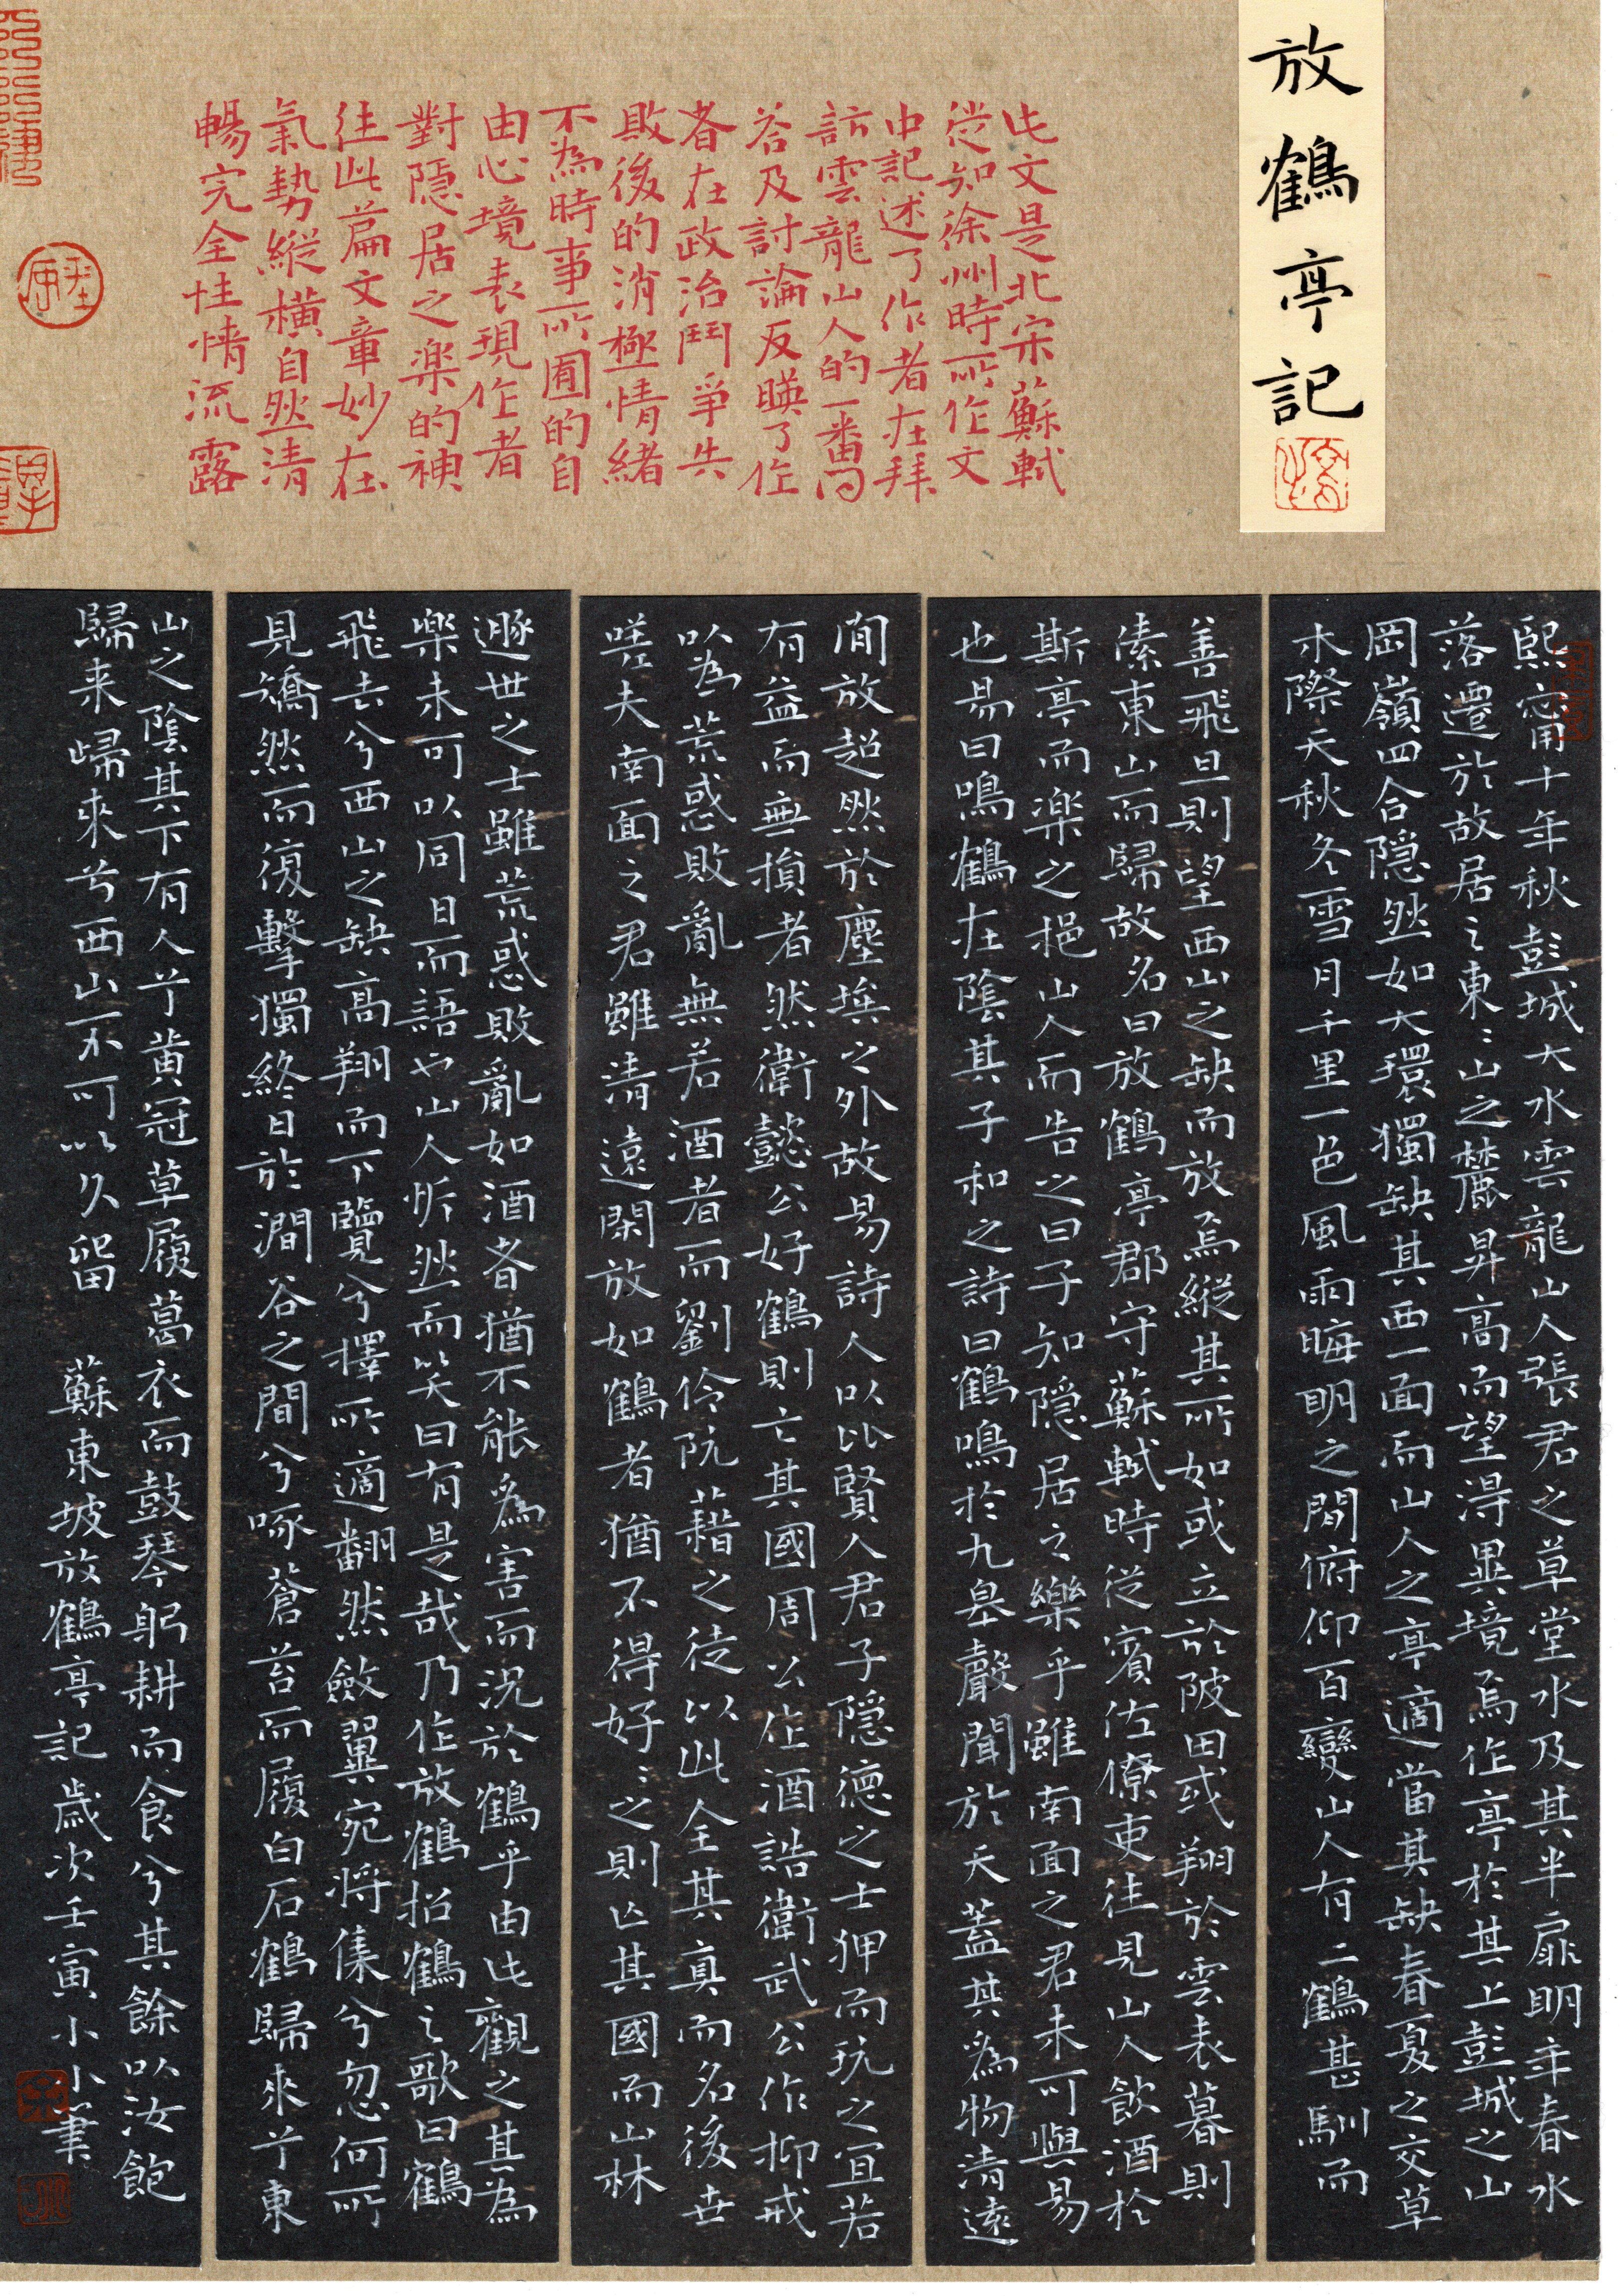 放鶴亭記
此文是北宋蘇軾
從知徐州時所作文
中記述了作者在拜
訪雲龍山人的一番問
答及討論反映了作
者在政治鬥爭失
敗後的消極情緒
不為時事所囿的自
由心境表現作者
對隱居之樂的神
往此篇文章妙在
氣勢縱橫自然清
暢完全性情流露
熙甯十年秋彭城大水雲龍山人張君之草堂水及其半扉明年春水
落遷於故居之東〻山之麓昇高而望得異境焉作亭於其上彭城之山
岡嶺四合隱然如大環獨缺其西一面而山人之亭適當其缺春夏之交草
木際天秋冬雪月千里一色風雨晦明之間俯仰百變山人有二鶴甚馴而
善飛旦則望西山之缺而放焉縱其所如或立於陂田或翔於雲表暮則
傃東山而歸故名曰放鶴亭郡守蘇軾時從賓佐僚吏往見山人飲酒於
斯亭而樂之挹山人而告之曰子知隱居之樂乎雖南面之君未可與易
也易曰鳴鶴在陰其子和之詩曰鶴鳴於九皋聲聞於天蓋其為物清遠
閒放超然於塵埃之外故易詩人以比賢人君子隱德之士狎而玩之宜若
有益而無損者然衛懿公好鶴則亡其國周公作酒誥衛武公作抑戒
以為荒惑敗亂無若酒者而劉伶阮藉之徒以此全其真而名後世
嗟夫南面之君雖清遠閑放如鶴者猶不得好〻之則亡其國而山林
遯世之士雖荒惑敗亂如酒者猶不能為害而況於鶴乎由此觀之其為
樂未可以同日而語也山人忻然而笑曰有是哉乃作放鶴招鶴之歌曰鶴
飛去兮西山之缺高翔而下覽兮擇所適翻然斂翼宛將集兮忽何所
見矯然而復擊獨終日於澗谷之間兮啄蒼苔而履白石鶴歸來兮東
山之陰其下有人兮黄冠草履葛衣而鼓琴躬耕而食兮其餘以汝飽
歸来歸來兮西山不可以久留 蘇東坡放鶴亭記歲次壬寅小小書